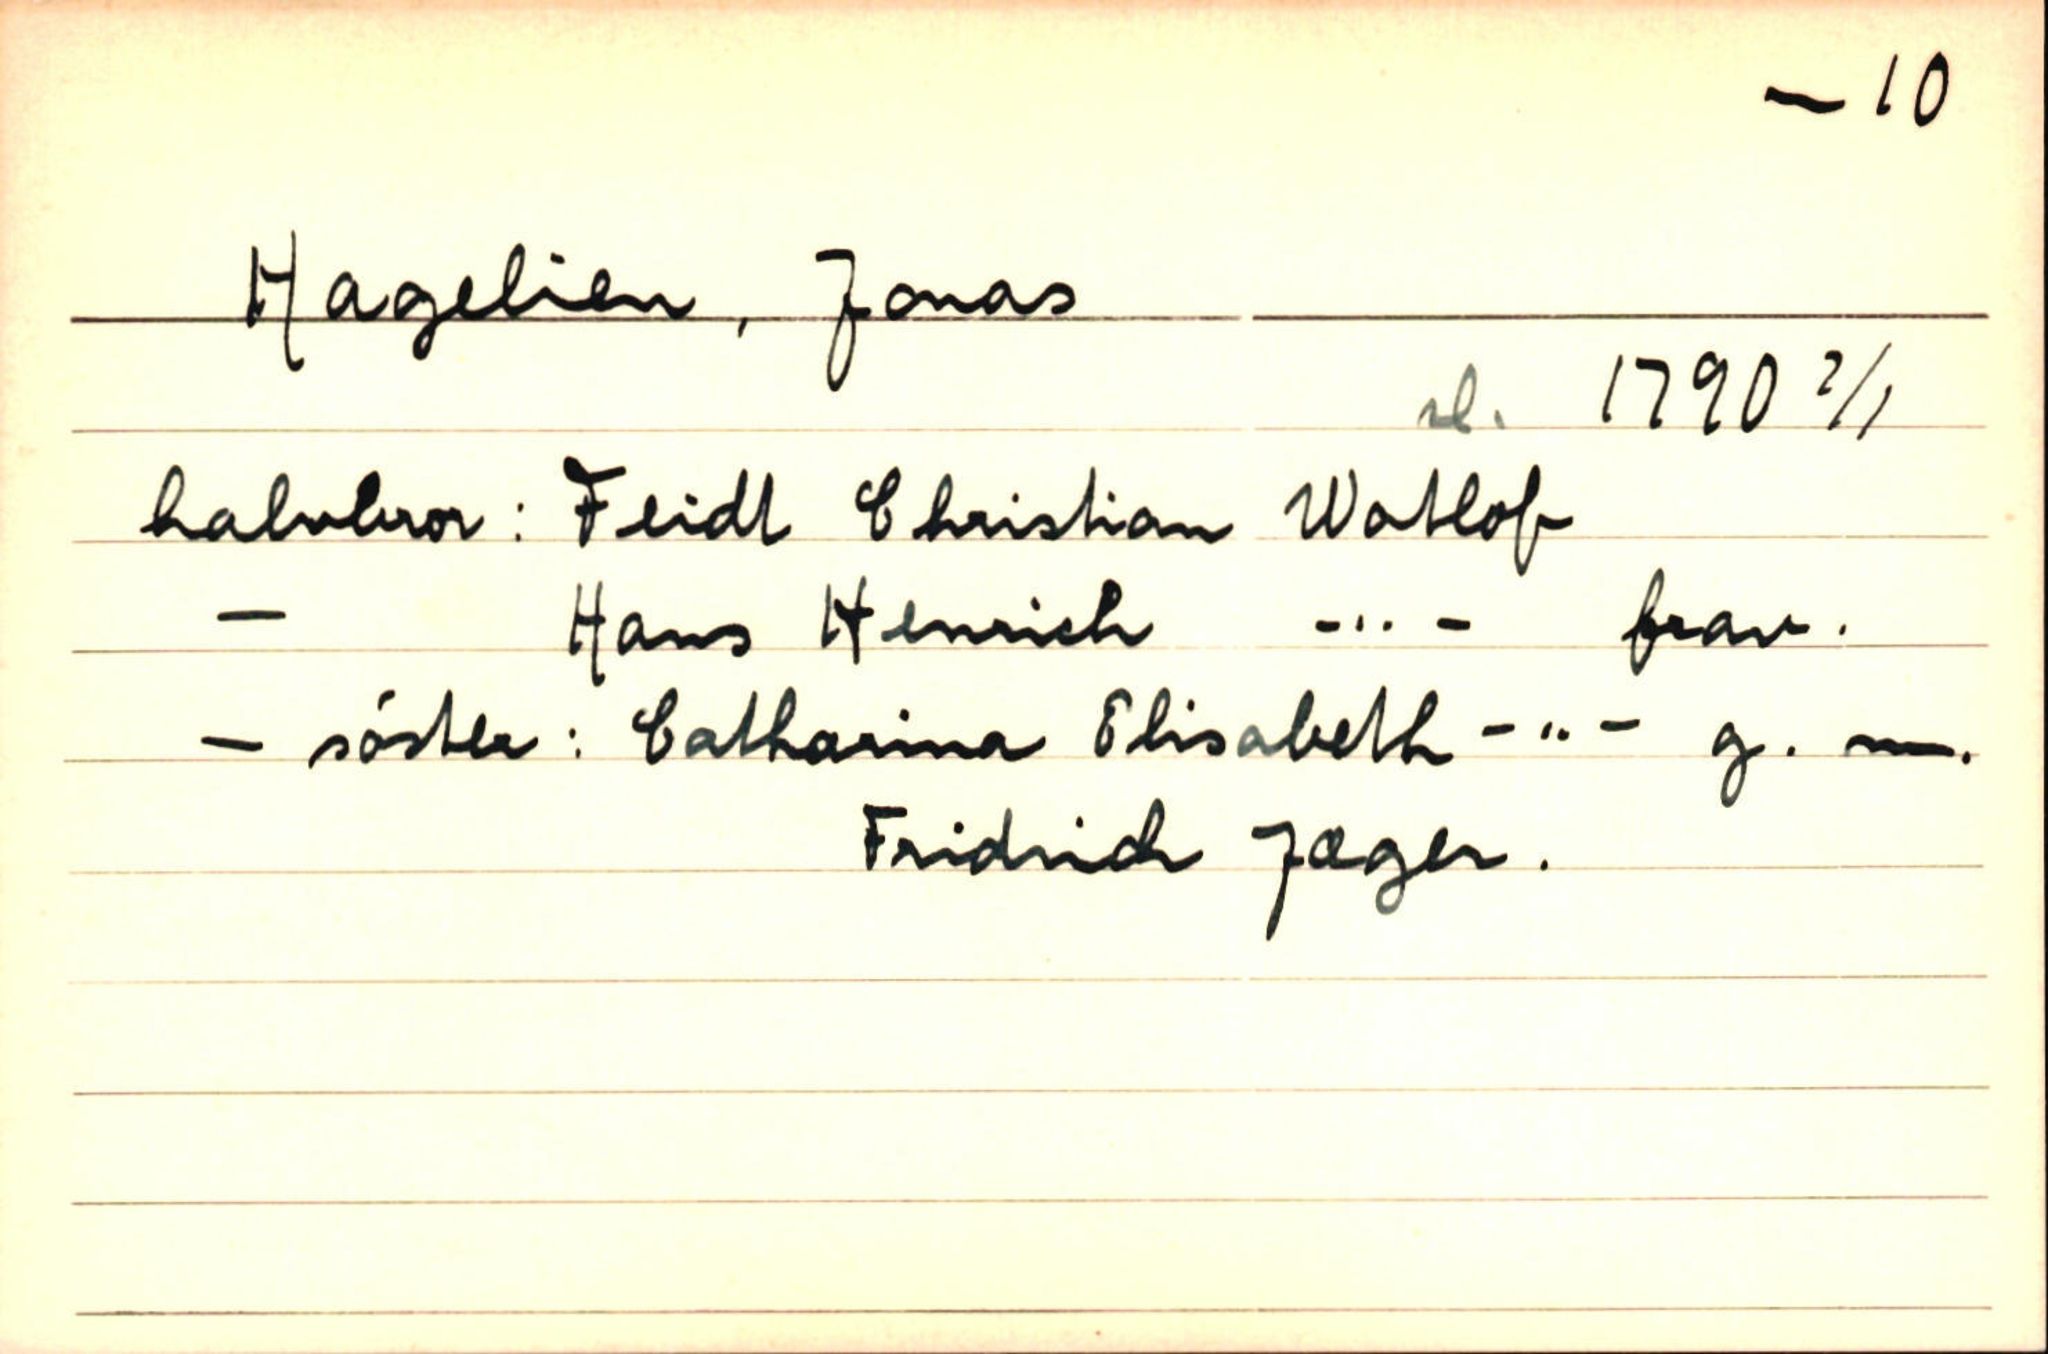 — 10
Hagelien, Jonas
sl. 1790 2/1
halvbror: Feidt Christian Watlof
— Hans Henrich -"- frav.
— söster: Catharina Elisabeth -"- g. m.
Fridrich Jæger.